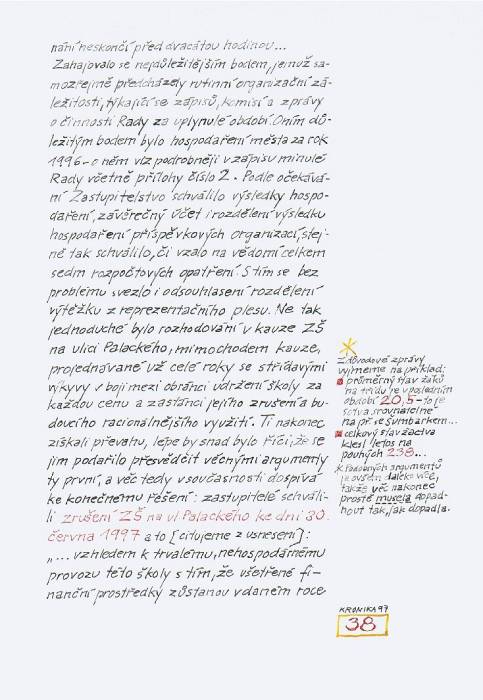 nání neskončí před dvacátou hodinou...
Zahajovalo se nejdůležitějším bodem, jemuž sa-
mozřejmě předcházely rutinní organizační zá-
ležitosti, týkající se zápisů, komisí a zprávy
o činnosti Rady za uplynulé období. Oním dů-
ležitým bodem bylo hospodaření města za rok
1996 - o něm viz podrobněji v zápisu minulé
Rady včetně přílohy číslo 2. Podle očekává-
ní Zastupitelstvo schválilo výsledky hospo-
daření, závěrečný účet i rozdělení výsledku
hospodaření příspěvkových organizací, stej-
ně tak schválilo, či vzalo na vědomí celkem
sedm rozpočtových opatření. S tím se bez
problému svezlo i odsouhlasení rozdělení
výtěžku z reprezentačního plesu. Ne tak
jednoduché bylo rozhodování v kauze ZŠ
na ulici Palackého, mimochodem kauze,
projednávané už celé roky se střídavými
výkyvy v boji mezi obránci udržení školy za
každou cenu a zastánci jejího zrušení a bu-
doucího racionálnějšího využití. Ti nakonec
získali převahu, lépe by snad bylo říci, že se
jim podařilo přesvědčit věcnými argumenty
ty první, a věc tedy v současnosti dospívá
ke konečnému řešení: zastupitelé schváli-
li zrušení ZŠ na ul. Palackého ke dni 30.
června 1997 a to [citujeme z usnesení]:
"... vzhledem k trvalému, nehospodárnému
provozu této školy s tím, že ušetřené fi-
nanční prostředky zůstanou v daném roce
Z důvodové zprávy
vyjmeme na příklad:
průměrný stav žáků
na třídu je v posledním
období 20,5 - to je
sotva srovnatelné
na př. se Šumbarkem...
celkový stav žactva
klesl letos na
pouhých 238...
K podobných argumentů
je ovšem daleko víc,
takže věc nakonec
prostě musela dopad-
nout tak, jak dopadla.
KRONIKA 97
38